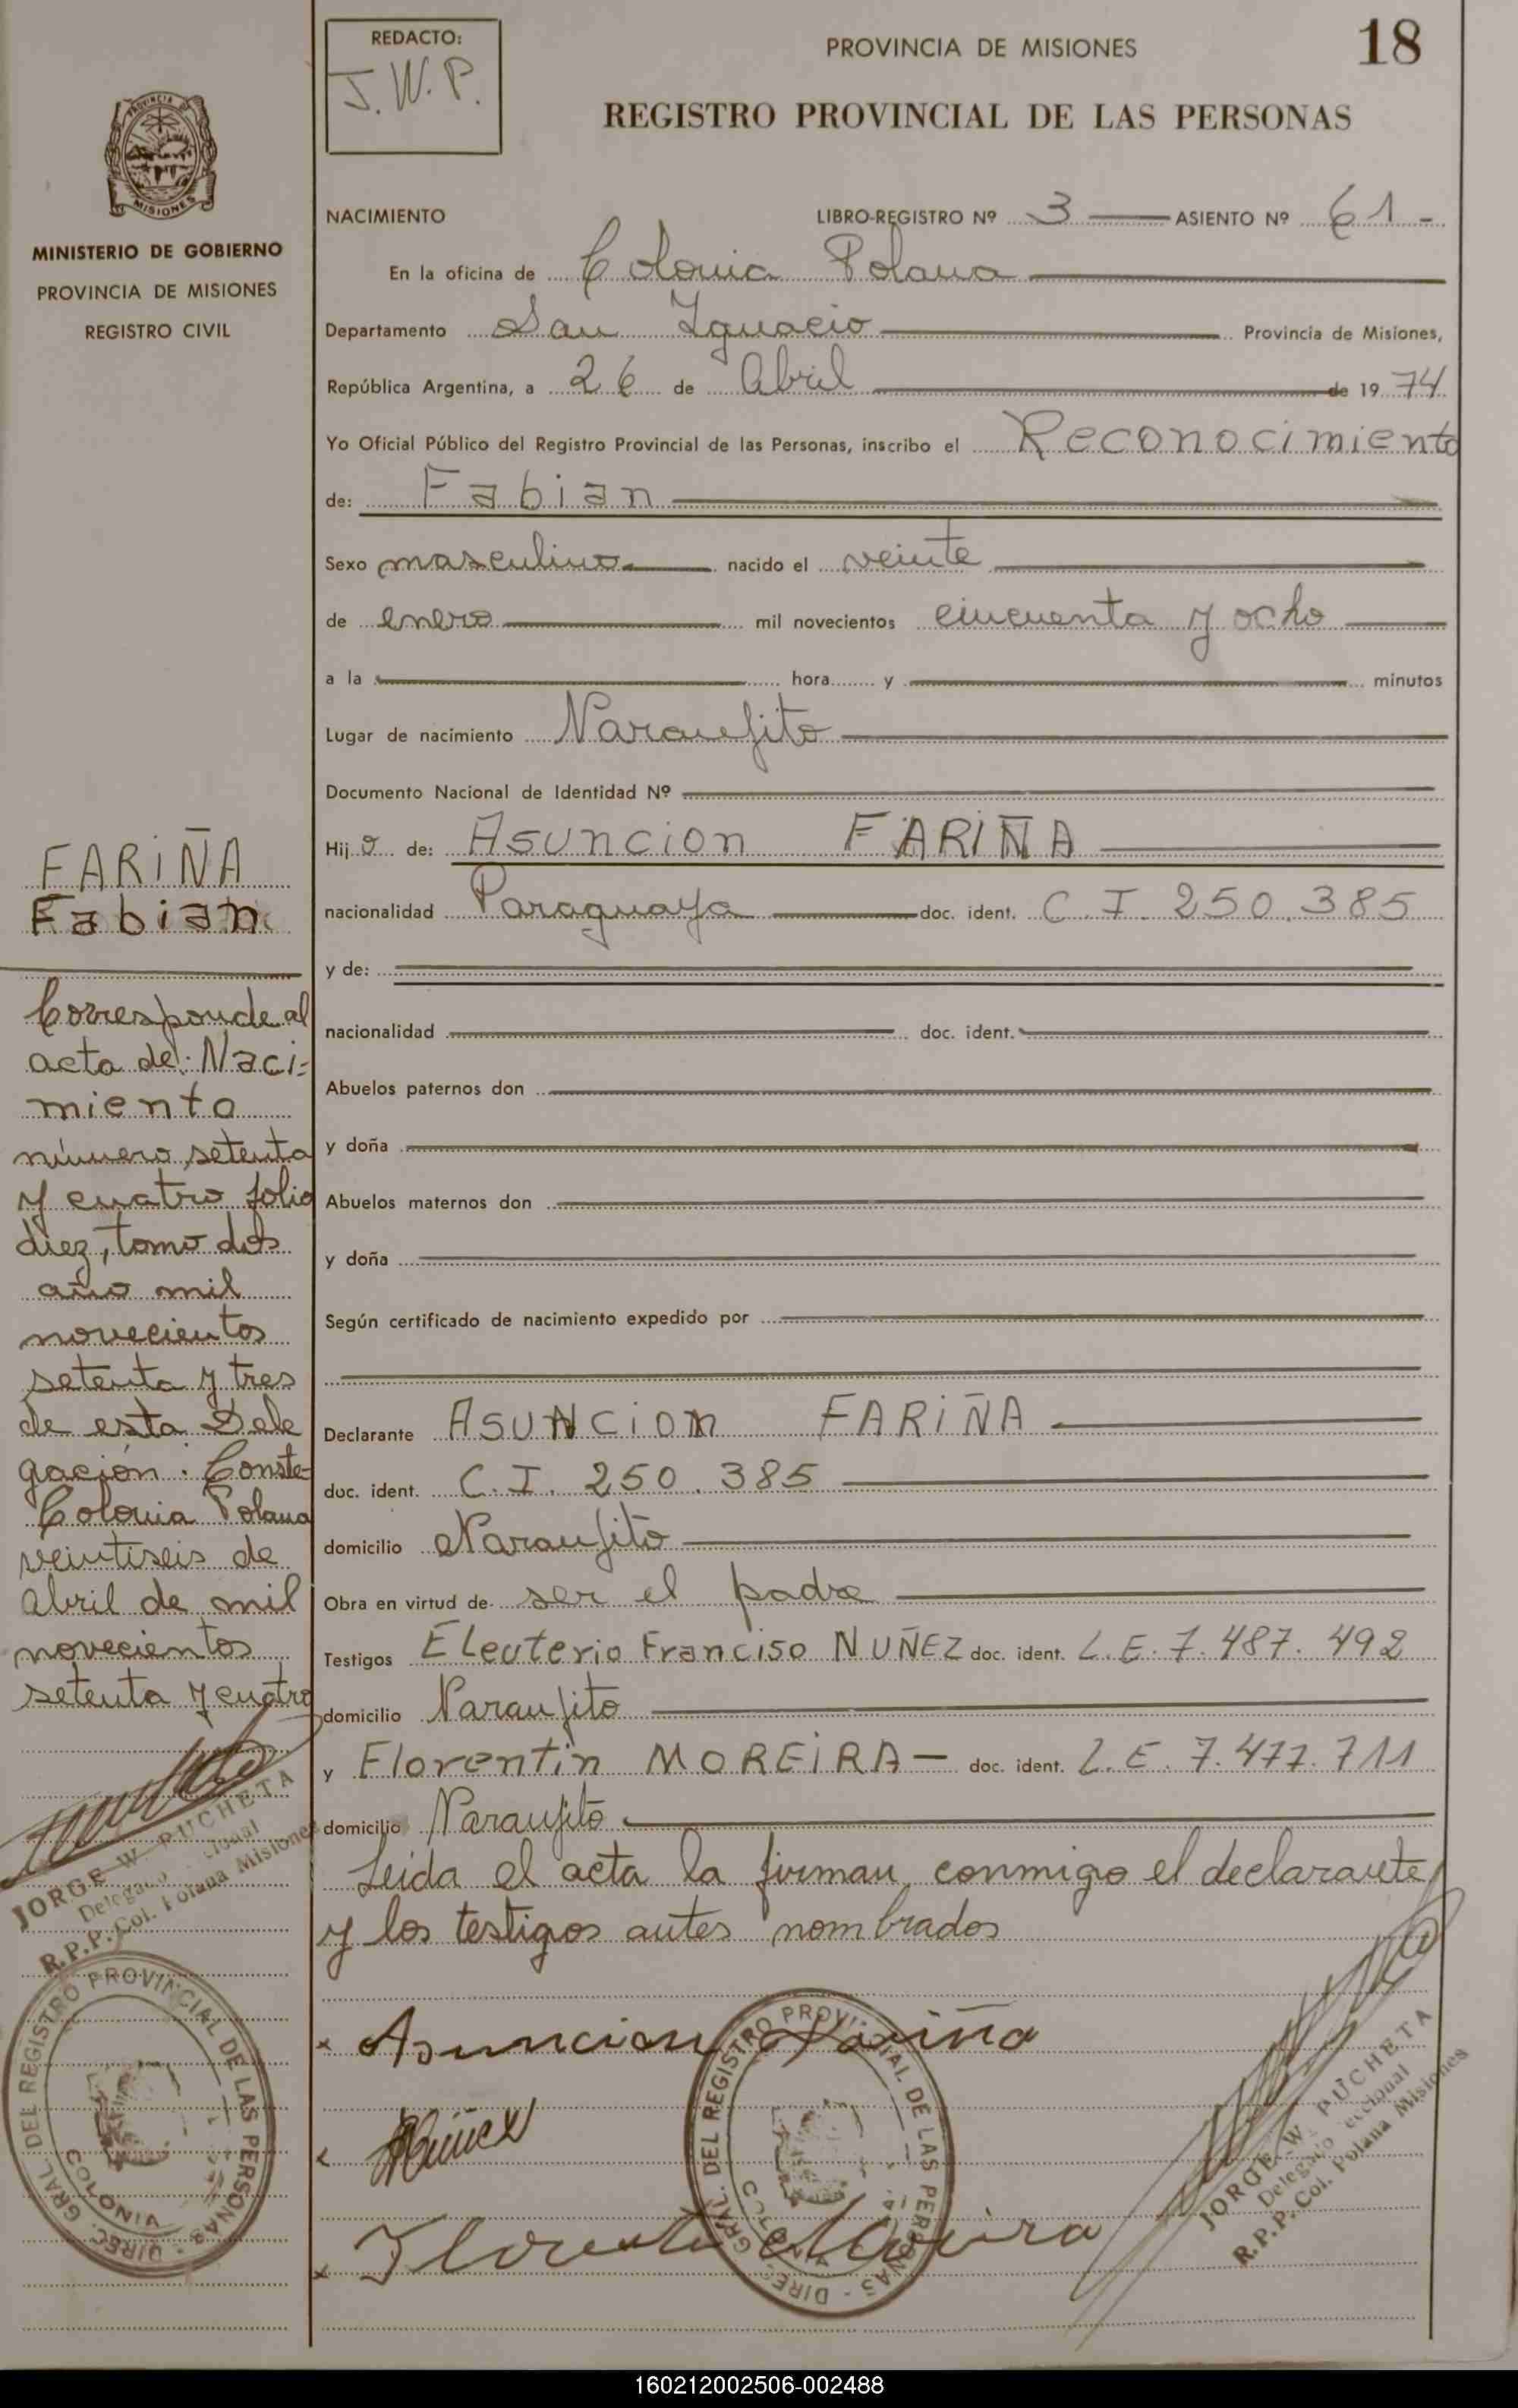 REDACTO:
J.W.P.
PROVINCIA DE MISIONES
18
REGISTRO PROVINCIAL DE LAS PERSONAS
MISIONES
MINISTERIO DE GOBIERNO
PROVINCIA DE MISIONES
REGISTRO CIVIL
NACIMIENTO LIBRO-REGISTRO Nº 3 ASIENTO Nº 61-
En la oficina de Colonia Polana
Departamento San Ignacio Provincia de Misiones,
República Argentina, a 26 de Abril de 1974
Yo Oficial Público del Registro Provincial de las Personas, inscribo el Reconocimiento
de: Fabian
Sexo masculino nacido el veinte
de enero mil novecientos cincuenta y ocho
a la hora y minutos
Lugar de nacimiento Naranjito
Documento Nacional de Identidad Nº
Hijo de: Asuncion FARIÑA
nacionalidad Paraguaya doc. ident. C.I. 250.385
y de:
nacionalidad doc. ident.
Abuelos paternos don
y doña
Abuelos maternos don
y doña
Según certificado de nacimiento expedido por
Declarante ASUNCION FARIÑA
doc. ident. C.I. 250.385
domicilio Naranjito
Obra en virtud de ser el padre
Testigos Eleuterio Franciso NUÑEZ doc. ident. L.E. 7.487.492
domicilio Naranjito
y Florentin MOREIRA- doc. ident. L.E. 7.477.711
domicilio Naranjito
Leida el acta la firman conmigo el declarante
y los testigos antes nombrados
x Asuncion Fariña
x Nuñez
x Florentin Moreira
DIREC. GRAL. DEL REGISTRO PROVINCIAL DE LAS PERSONAS
JORGE W. PUCHETA
Delegado Seccional
R.P.P. Col. Polana Misiones
FARIÑA
Fabian
Corresponde al
acta de: Naci-
miento
número setenta
y cuatro folio
diez, tomo dos
año mil
novecientos
setenta y tres
de esta Dele
gación. Conste-
Colonia Polana
veintiseis de
Abril de mil
novecientos
setenta y cuatro
JORGE W. PUCHETA
Delegado Seccional
R.P.P. Col. Polana Misiones
DIREC. GRAL. DEL REGISTRO PROVINCIAL DE LAS PERSONAS
COLONIA
160212002506-002488